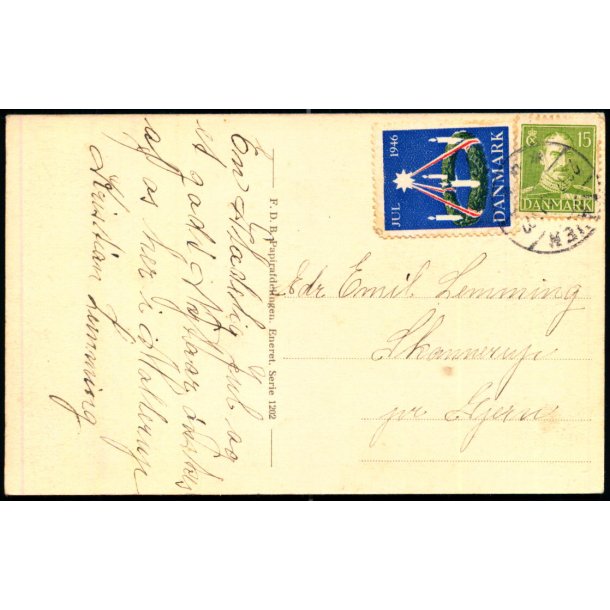 En Glædelig Jul og
et godt Nytaar ønskes
af os her i Mollerup
Kristian Lemming
F. D. B. Papirafdelingen. Eneret. Serie 1202
JUL 1946
DANMARK
15
DANMARK
Hdr Emil Lemming
Skannerup
pr Hjerm